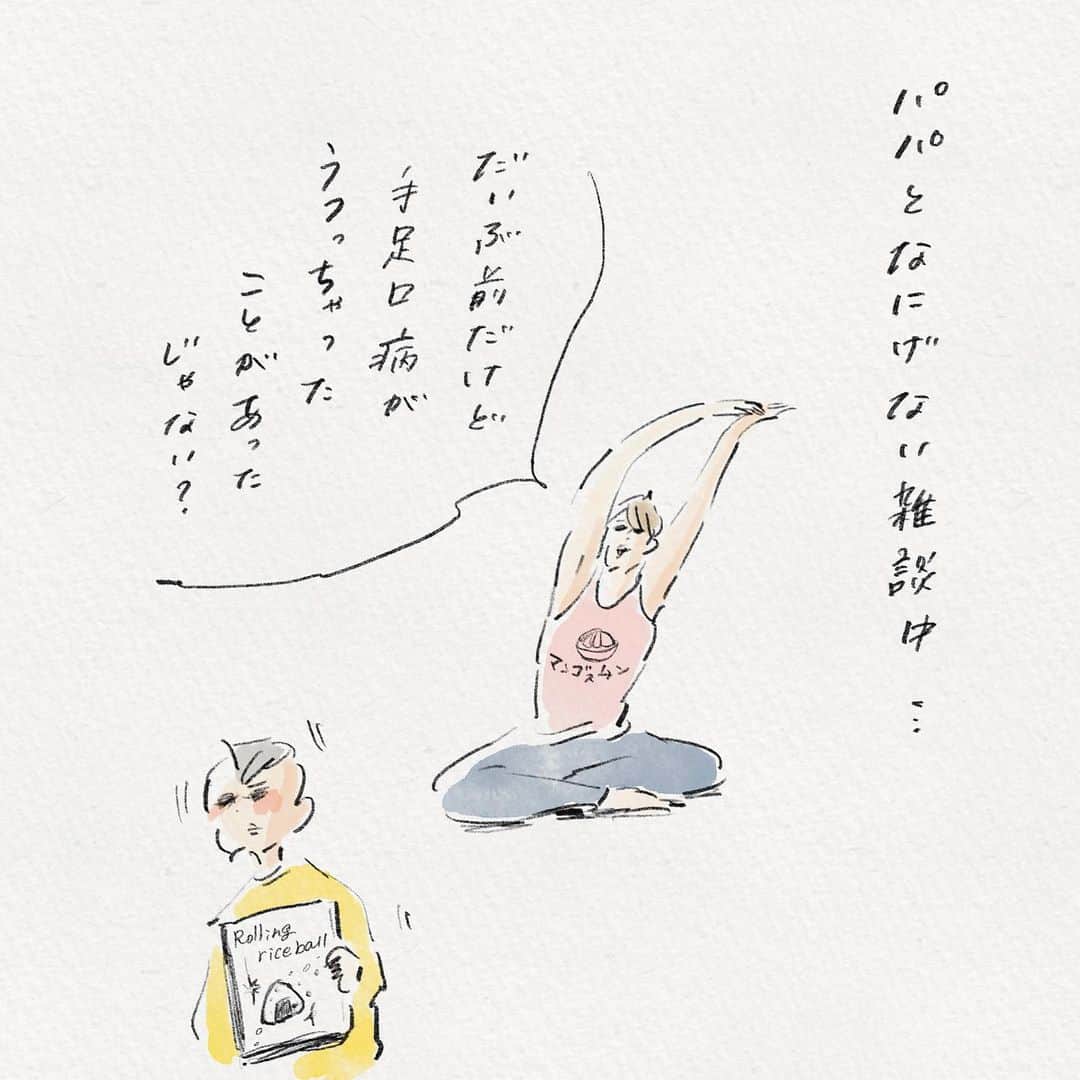 パパとなにげない雑談中…
だいぶ前だけど
手足口病が
うつっちゃった
ことがあった
じゃない？
マンゴスムン
Rolling
rice ball